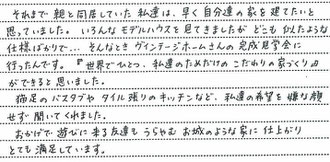 それまで親と同居していた私達は、早く自分達の家を建てたいと
思っていました。いろんなモデルハウスを見てきましたが どこも似たような
仕様ばかりで…そんなとき ヴィンテージホームさんの完成見学会に
行ったんです。『世界でひとつ、私達のためだけの こだわりの家づくり』
ができると思いました。
猫足のバスタブや タイル張りのキッチンなど、私達の希望を嫌な顔
せず聞いてくれました。
おかげで 遊びに来る友達も うらやむ お城のような家に仕上がり
とても満足しています。